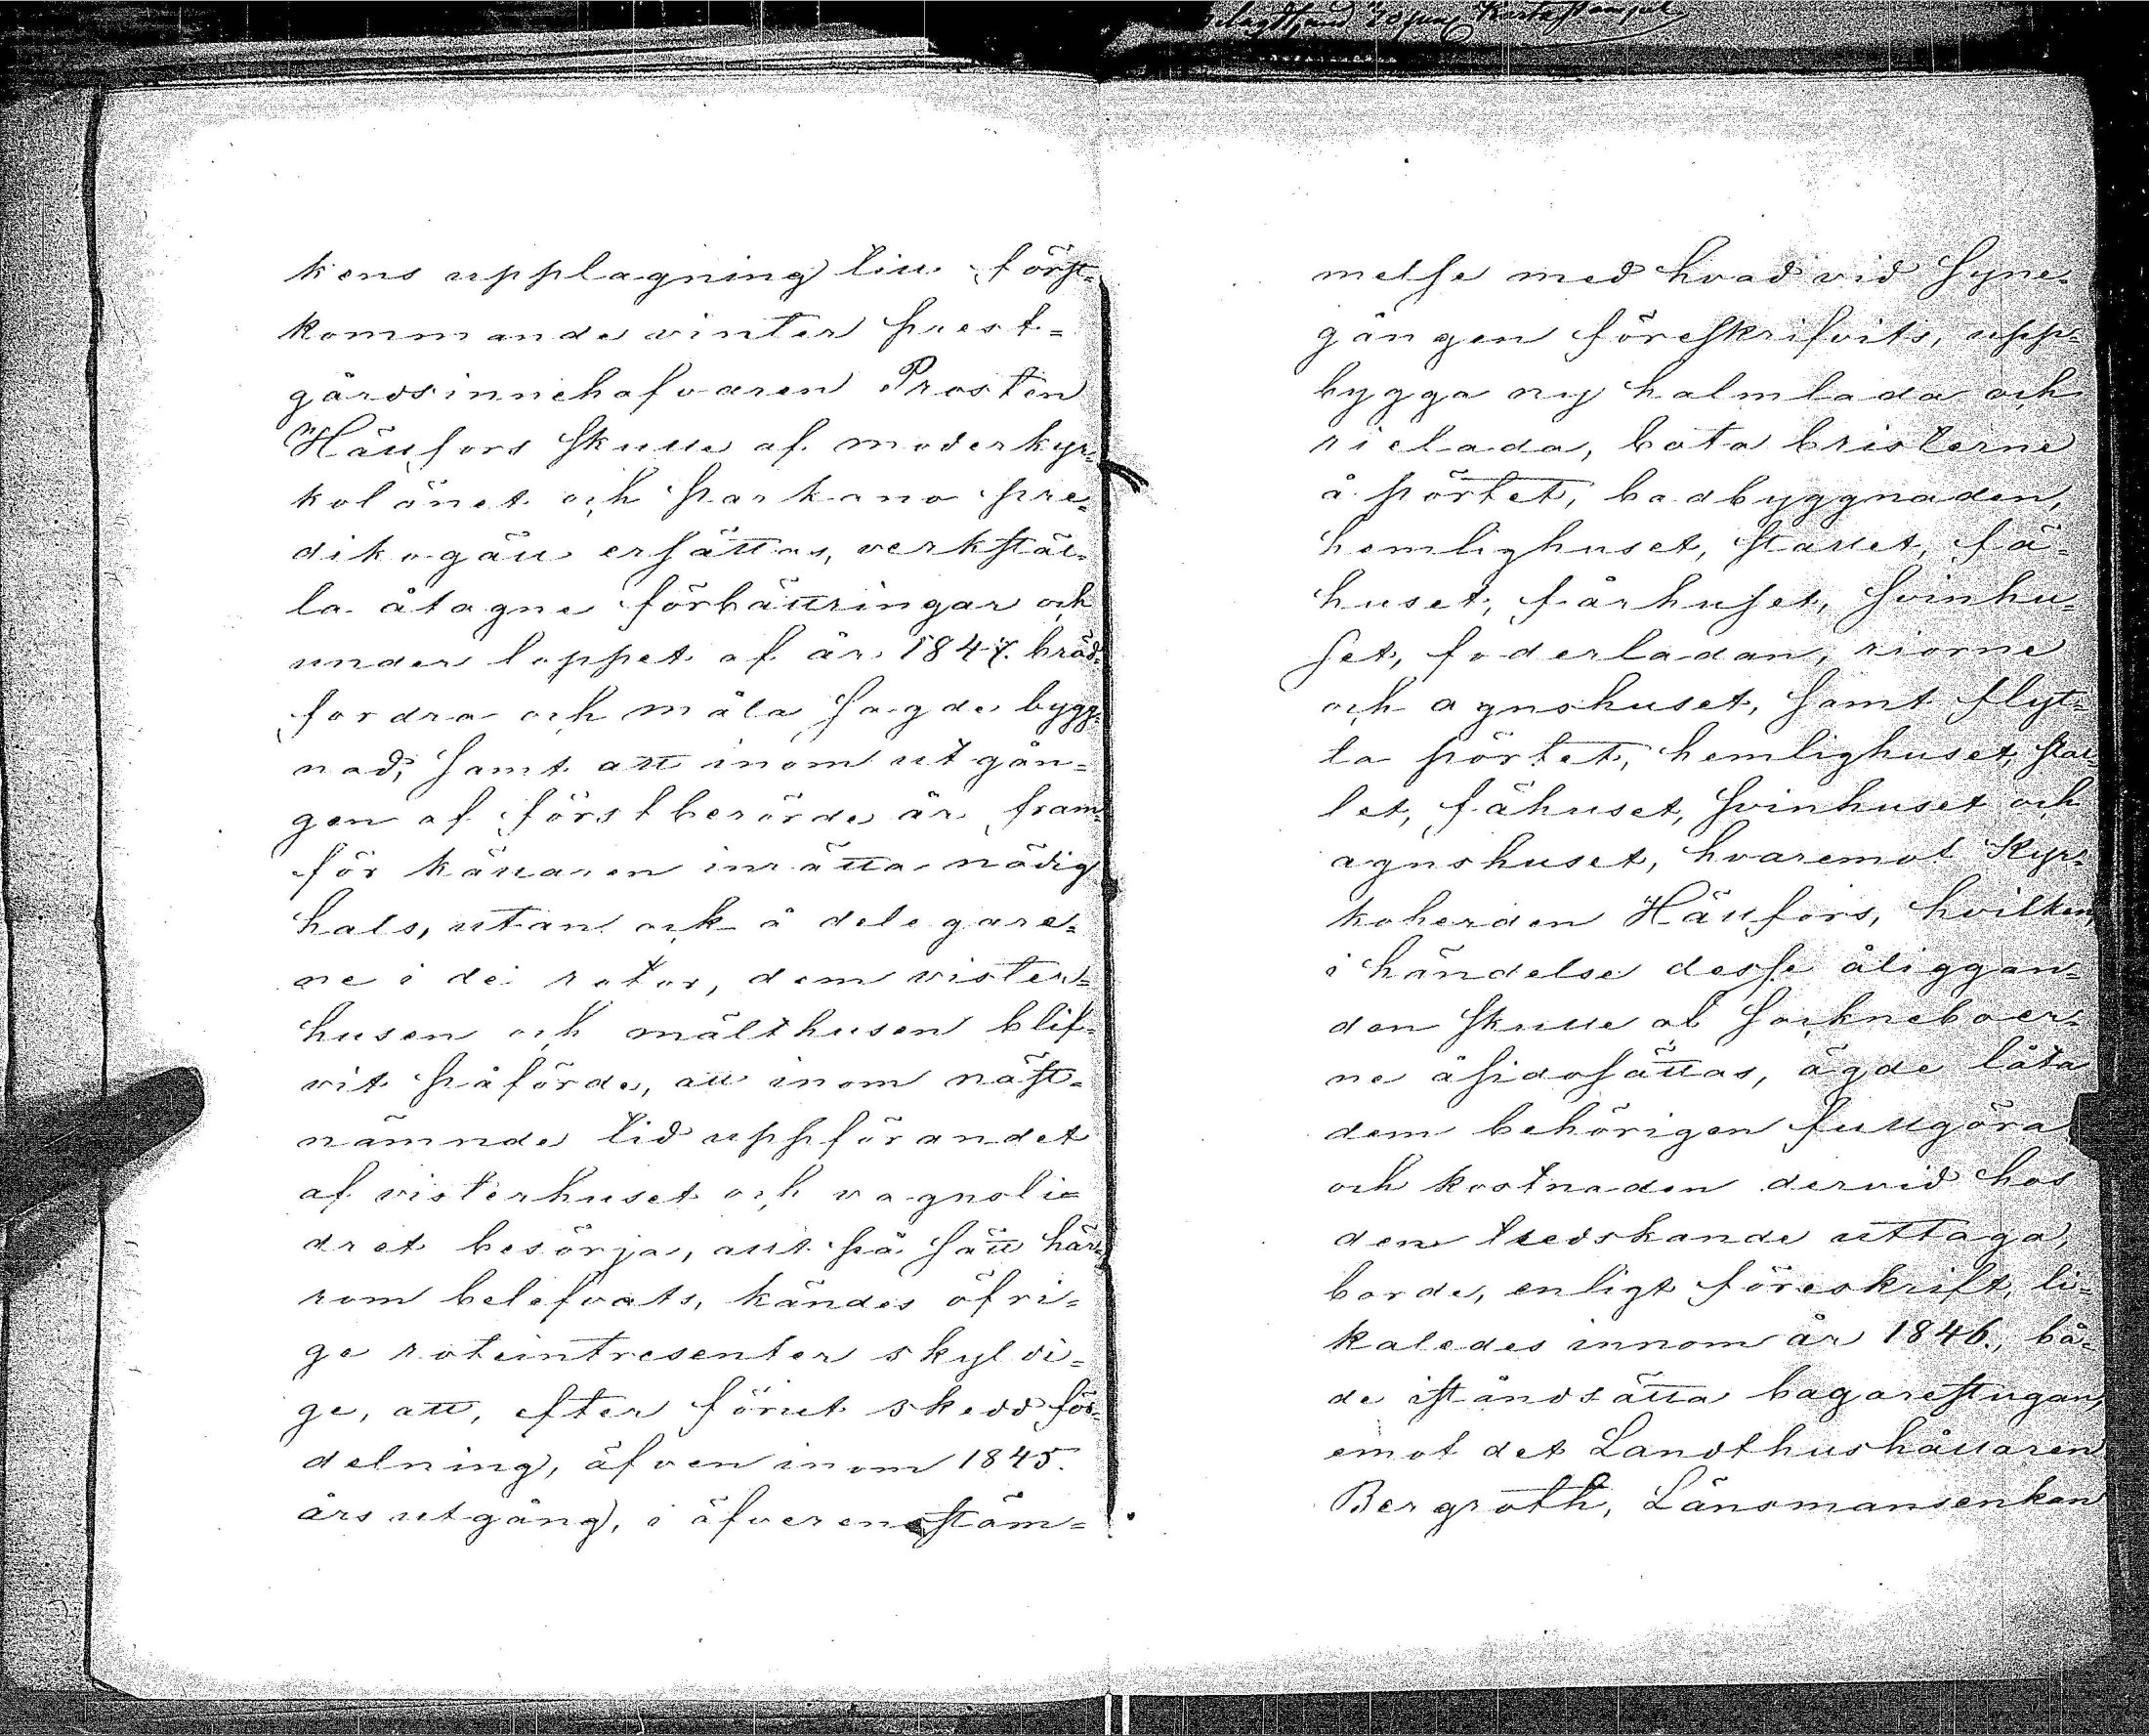 kens upplagning till först-
kommande vinter prest-
gårdsinnehafvaren Prosten
Hällfors skulle af moderkyr-
kolånet och Parkano pre-
dikogäll ersättas, verkstäl-
la åtagne förbättringar och
under loppet af år 1847. bräd-
fordra och måla sagde bygg-
nad; samt att inom utgån-
gen af förstberörde år, fram-
för källaren inrätta nödig
hals, utan ock å delegare-
ne i de rotar, dem vister-
husen och mälthusen blif-
vit påförde, att inom näst-
nämnde tid uppförandet
af visterhuset och vagnsli-
dret besörja, allt på sätt här-
som belefvats, kändes öfri-
ge roteintresenter skyldi-
ge, att, efter förut skedd för-
delning, äfven inom 1845.
års utgång, i äfverensstäm-
melse med hvad vid Syne-
gången föreskrifvits, upp-
bygga ny halmlada och
rielada, bota bristerne
å pörtet, badbyggnaden,
hemlighuset, stallet, fä-
huset, fårhuset, svinhu-
set, foderladan, riorne
och agnshuset, samt flyt-
ta pörtet, hemlighuset, stal-
let, fähuset, svinhuset och
agnshuset, hvaremot Kyr-
koherden Hällfors, hvilken,
i händelse desse åliggan-
den skulle af Sockneboer-
ne åsidosättas, ägde låta
dem behörigen fullgöra
och kostnaden dervid hos
den tredskande uttaga,
borde, enligt föreskrift, li-
kaledes innom år 1846., bå-
de iståndsätta bagarestugan,
emot det Landthushållaren
Bergroth, Länsmansenkan